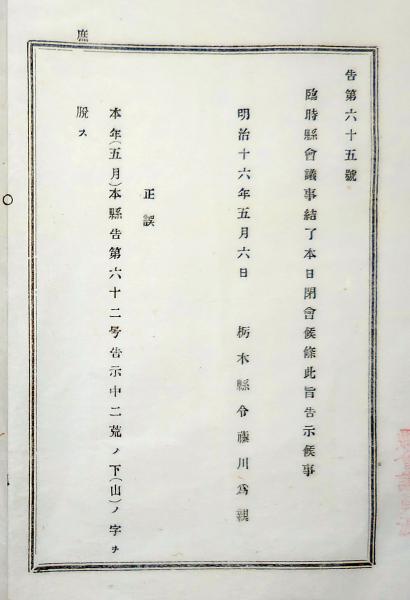 告第六十五號
臨時縣會議事結了本日閉會候條此旨告示候事
明治十六年五月六日　栃木縣令藤川爲親
正誤
本年(五月)本縣告第六十二号告示中二荒ノ下(山)ノ字ヲ
脱ス
庶